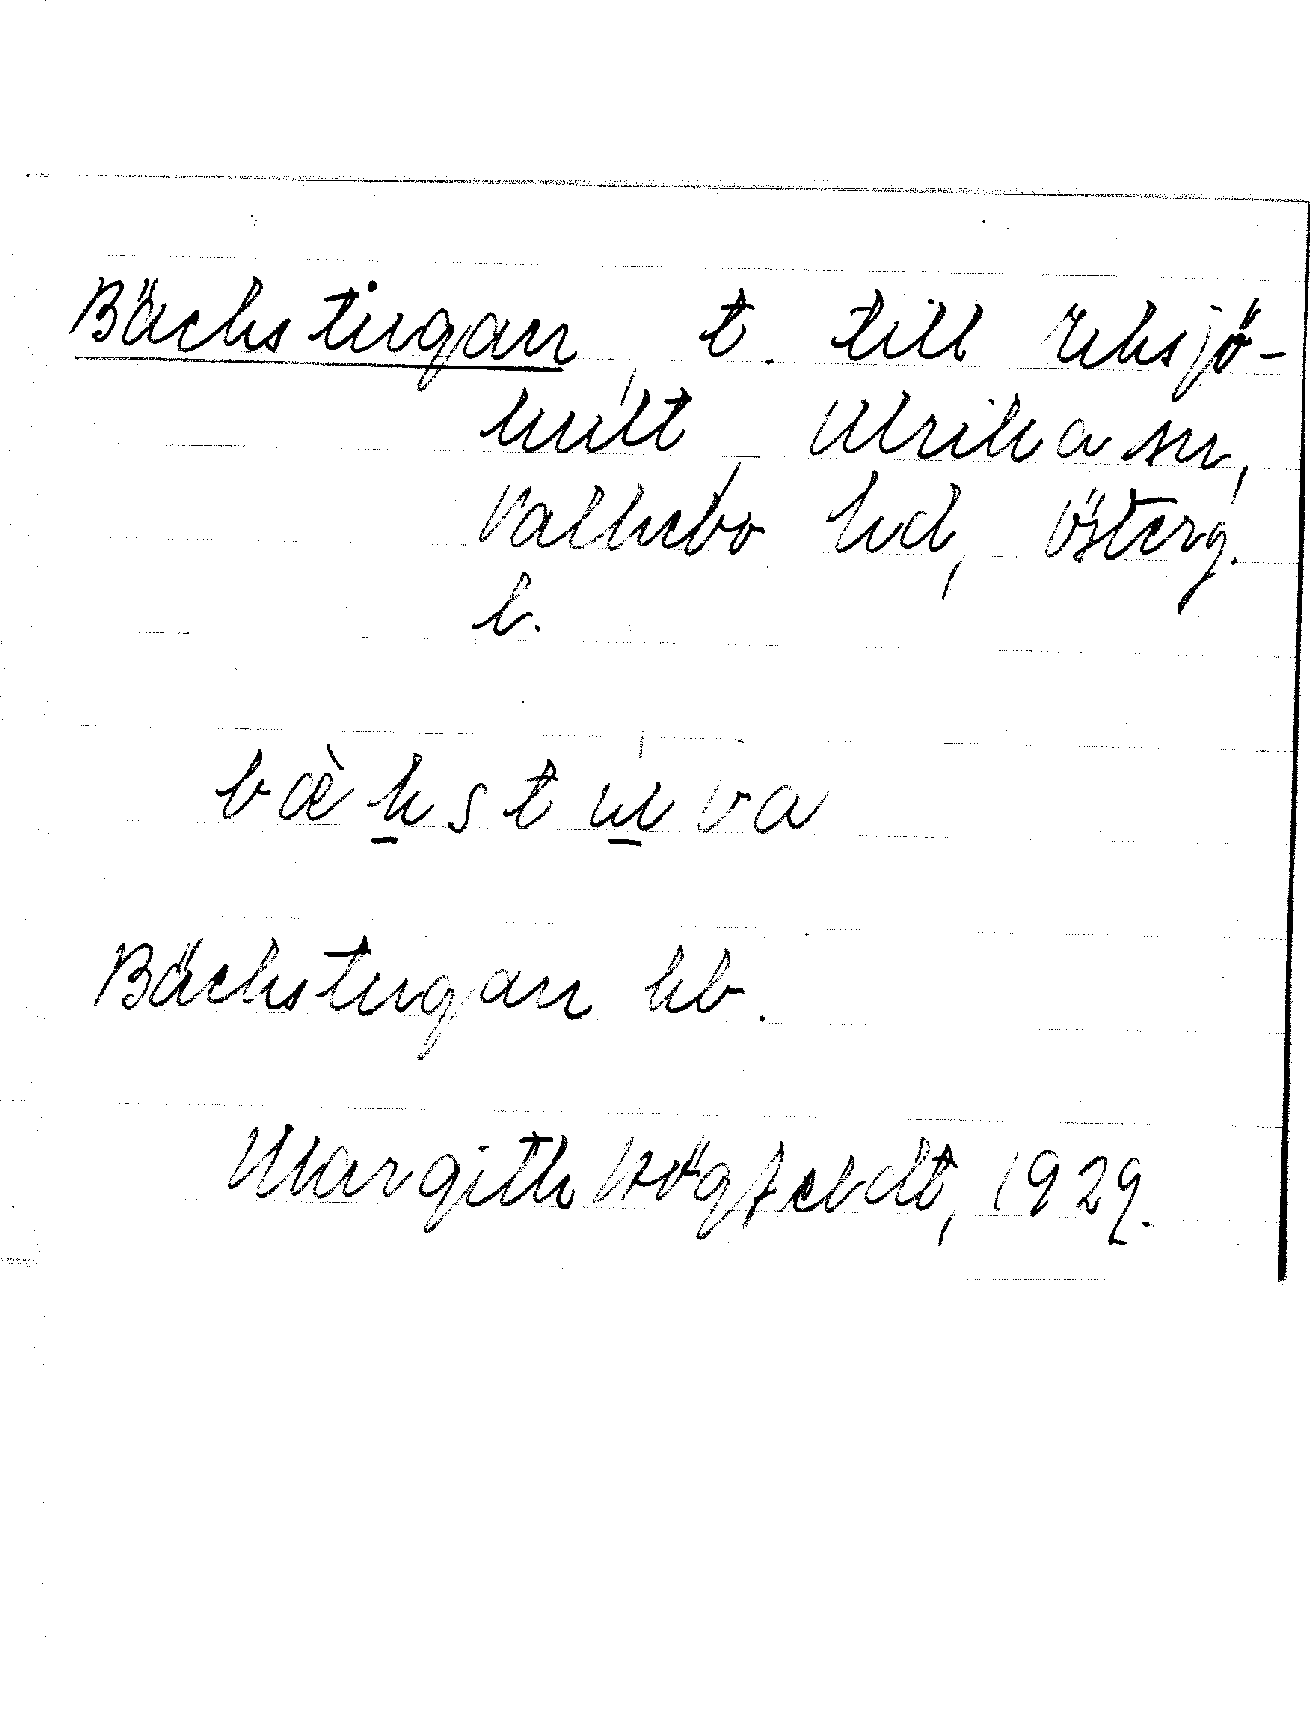 Bäckstugan, t. till Eksjö-
hult, Ulrika sn,
Valkebo hd, Österg.
l.
bæ̀kstu̠va
Bäckstugan kb.
Margith Högfeldt, 1929.